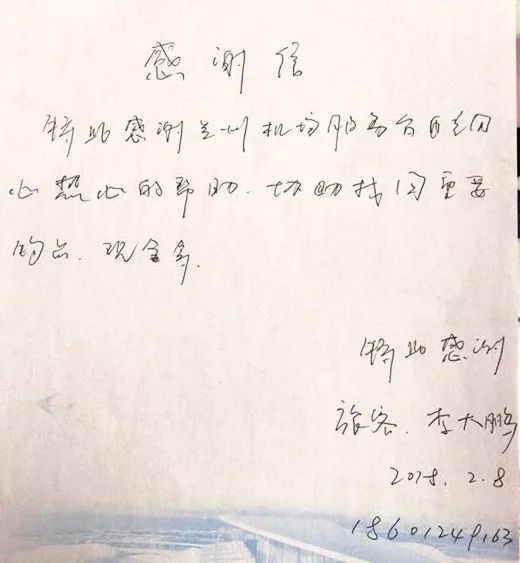 感谢信
特此感谢兰州机场服务台
心热心的帮助.协助找回重要
物品.现金等.
特此感谢
旅客.李大鹏
2018.2.8
18601249163